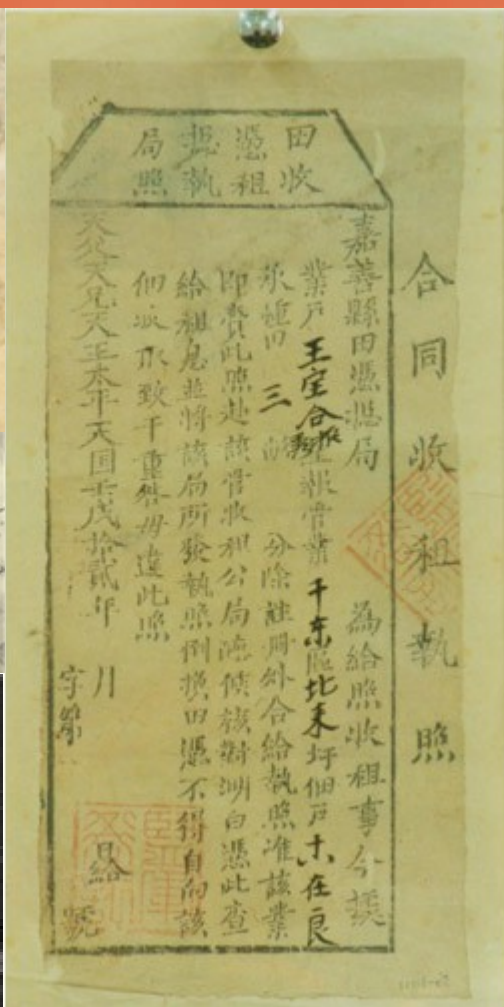 合同收租執照
田憑總局
收租執照
嘉善縣田憑總局 為給照收租事今據
業戶王宝合 報管業千东區北来圩佃戶 在良
承種田三 分除註冊外合給執照准該業
即賫此照赴該管收租公局 候核對明白憑此查
給租息並將該局所發執照倒換田憑不得自向該
佃 取致干重咎毋違此照
天父天兄天王太平天国壬戌拾貳年 月 日給
字第 號